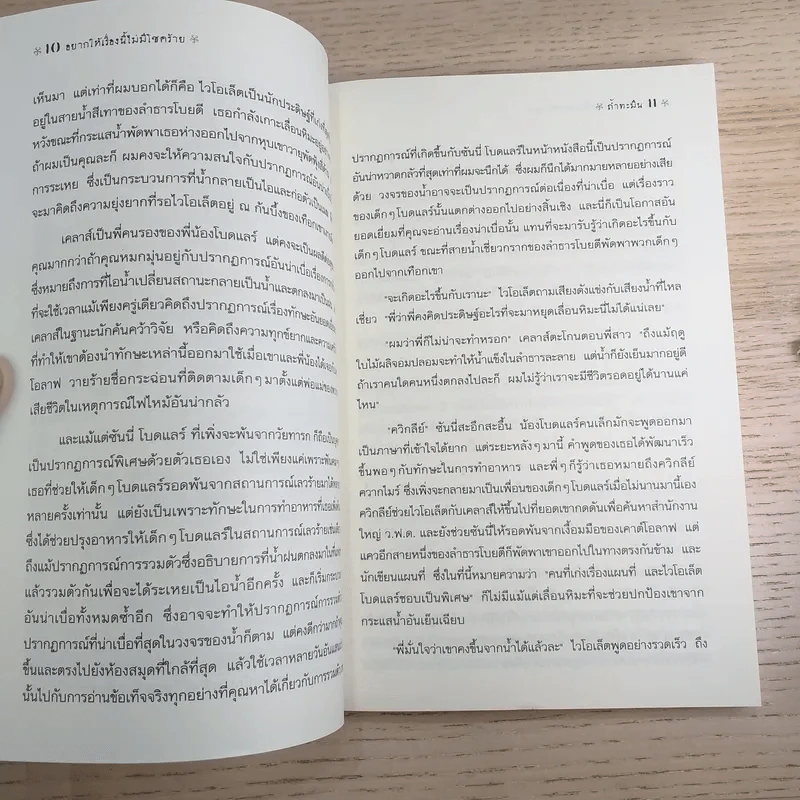 10 อยากให้เรื่องนี้ไม่มีโชคร้าย
เห็นมา แต่เท่าที่ผมบอกได้ก็คือ ไวโอเล็ตเป็นนักประดิษฐ์ที่เก่ง
อยู่ในสายน้ำสีเทาของลำธารโบยตี เธอกำลังเกาะเลื่อนหิมะ
หวังขณะที่กระแสน้ำพัดพาเธอห่างออกไปจากหุบเขาวายุพัด
ถ้าผมเป็นคุณละก็ ผมคงจะให้ความสนใจกับปรากฏการณ์อันน่า
การระเหย ซึ่งเป็นกระบวนการที่น้ำกลายเป็นไอและก่อตัวเป็น
จะมาคิดถึงความยุ่งยากที่รอไวโอเล็ตอยู่ ณ กันบึ้งของเทือกเขา
เคลาส์เป็นพี่คนรองของพี่น้องโบดแลร์ แต่คงจะเป็นผลดีต่อ
คุณมากกว่าถ้าคุณหมกมุ่นอยู่กับปรากฏการณ์อันน่าเบื่อเรื่อง
ซึ่งหมายถึงการที่ไอน้ำเปลี่ยนสถานะกลายเป็นน้ำและตกลงมาเป็น
ที่จะใช้เวลาแม้เพียงครู่เดียวคิดถึงปรากฏการณ์เรื่องทักษะอัน
เคลาส์ในฐานะนักค้นคว้าวิจัย หรือคิดถึงความทุกข์ยากและความ
ที่ทำให้เขาต้องนำทักษะเหล่านี้ออกมาใช้เมื่อเขาและพี่น้องได้
โอลาฟ วายร้ายชื่อกระฉ่อนที่ติดตามเด็กๆ มาตั้งแต่พ่อแม่ของ
เสียชีวิตในเหตุการณ์ไฟไหม้อันน่ากลัว
และแม้แต่ซันนี่ โบดแลร์ ที่เพิ่งจะพ้นจากวัยทารก ก็ถือเป็น
เป็นปรากฏการณ์พิเศษด้วยตัวเธอเอง ไม่ใช่เพียงแค่เพราะฟัน
เธอที่ช่วยให้เด็กๆ โบดแลร์รอดพ้นจากสถานการณ์เลวร้ายมาได้
หลายครั้งเท่านั้น แต่ยังเป็นเพราะทักษะในการทำอาหารที่เธอเพิ่ง
ซึ่งได้ช่วยปรุงอาหารให้เด็กๆ โบดแลร์ในสถานการณ์เลวร้าย
ถึงแม้ปรากฏการณ์การรวมตัวซึ่งอธิบายการที่น้ำฝนตกลงมาในที่
แล้วรวมตัวกันเพื่อจะได้ระเหยเป็นไอน้ำอีกครั้ง และก็เริ่มกระบวน
อันน่าเบื่อทั้งหมดซ้ำอีก ซึ่งอาจจะทำให้ปรากฏการณ์การรวมตัว
ปรากฏการณ์ที่น่าเบื่อที่สุดในวงจรของน้ำก็ตาม แต่คงดีกว่ามาก
ขึ้นและตรงไปยังห้องสมุดที่ใกล้ที่สุด แล้วใช้เวลาหลายวันอัน
นั้นไปกับการอ่านข้อเท็จจริงทุกอย่างที่คุณหาได้เกี่ยวกับการรวมตัว
ถ้ำทะมึน 11
ปรากฏการณ์ที่เกิดขึ้นกับซันนี่ โบดแลร์ในหน้าหนังสือนี้เป็นปรากฏการณ์
อันน่าหวาดกลัวที่สุดเท่าที่ผมจะนึกได้ ซึ่งผมก็นึกได้มากมายหลายอย่างเสีย
ด้วย วงจรของน้ำอาจจะเป็นปรากฏการณ์ต่อเนื่องที่น่าเบื่อ แต่เรื่องราว
ของเด็กๆ โบดแลร์นั้นแตกต่างออกไปอย่างสิ้นเชิง และนี่ก็เป็นโอกาสอัน
ยอดเยี่ยมที่คุณจะอ่านเรื่องน่าเบื่อนั้น แทนที่จะมารับรู้ว่าเกิดอะไรขึ้นกับ
เด็กๆ โบดแลร์ ขณะที่สายน้ำเชี่ยวกรากของลำธารโบยตีพัดพาพวกเด็กๆ
ออกไปจากเทือกเขา
"จะเกิดอะไรขึ้นกับเรานะ" ไวโอเล็ตถามเสียงดังแข่งกับเสียงน้ำที่ไหล
เชี่ยว "พี่ว่าพี่คงคิดประดิษฐ์อะไรที่จะมาหยุดเลื่อนหิมะนี่ไม่ได้แน่เลย"
"ผมว่าพี่ก็ไม่น่าจะทำหรอก" เคลาส์ตะโกนตอบพี่สาว "ถึงแม้ฤดู
ใบไม้ผลิจอมปลอมจะทำให้น้ำแข็งในลำธารละลาย แต่น้ำก็ยังเย็นมากอยู่ดี
ถ้าเราคนใดคนหนึ่งตกลงไปละก็ ผมไม่รู้ว่าเราจะมีชีวิตรอดอยู่ได้นานแค่
ไหน"
"ควิกลีย์" ซันนี่สะอึกสะอื้น น้องโบดแลร์คนเล็กมักจะพูดออกมา
เป็นภาษาที่เข้าใจได้ยาก แต่ระยะหลังๆ มานี้ คำพูดของเธอได้พัฒนาเร็ว
ขึ้นพอๆ กับทักษะในการทำอาหาร และพี่ๆ ก็รู้ว่าเธอหมายถึงควิกลีย์
ควากไมร์ ซึ่งเพิ่งจะกลายมาเป็นเพื่อนของเด็กๆ โบดแลร์เมื่อไม่นานมานี้เอง
ควิกลีย์ช่วยไวโอเล็ตกับเคลาส์ให้ขึ้นไปที่ยอดเขากดดันเพื่อค้นหาสำนักงาน
ใหญ่ ว.ฟ.ด. และยังช่วยซันนี่ให้รอดพ้นจากเงื้อมมือของเคาต์โอลาฟ แต่
แควอีกสายหนึ่งของลำธารโบยตีก็พัดพาเขาออกไปในทางตรงกันข้าม และ
นักเขียนแผนที่ ซึ่งในที่นี้หมายความว่า "คนที่เก่งเรื่องแผนที่ และไวโอเล็ต
โบดแลร์ชอบเป็นพิเศษ" ก็ไม่มีแม้แต่เลื่อนหิมะที่จะช่วยปกป้องเขาจาก
กระแสน้ำอันเย็นเฉียบ
"พี่มั่นใจว่าเขาคงขึ้นจากน้ำได้แล้วละ" ไวโอเล็ตพูดอย่างรวดเร็ว ถึง